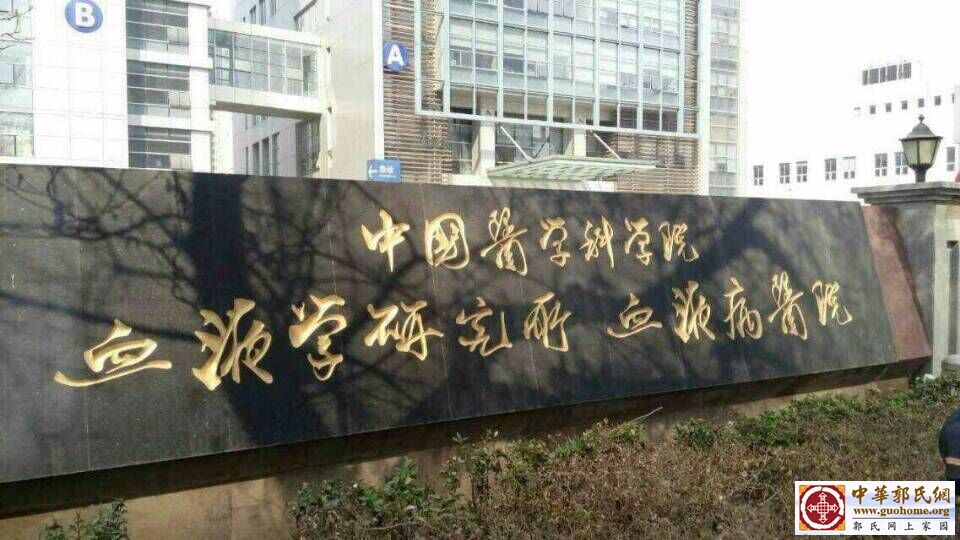 B
A
急诊
中國醫学科学院
血液学研究所 血液病醫院
中華郭氏網
www.guohome.org
郭氏网上家园